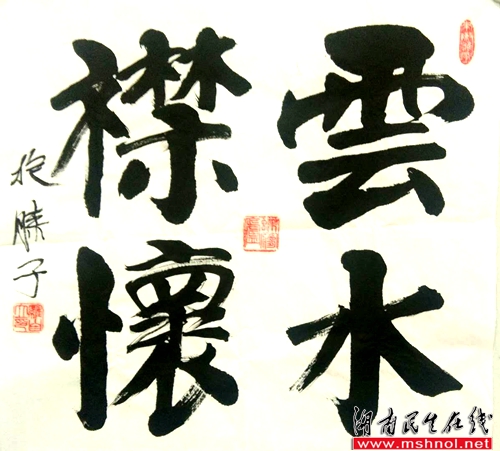 雲水
襟懷
抱膝子
湖南民生在线
www.mshnol.net